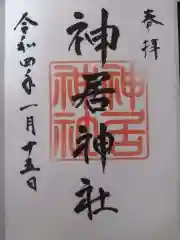 奉拝
神居神社
神居神社
令和四年一月十五日